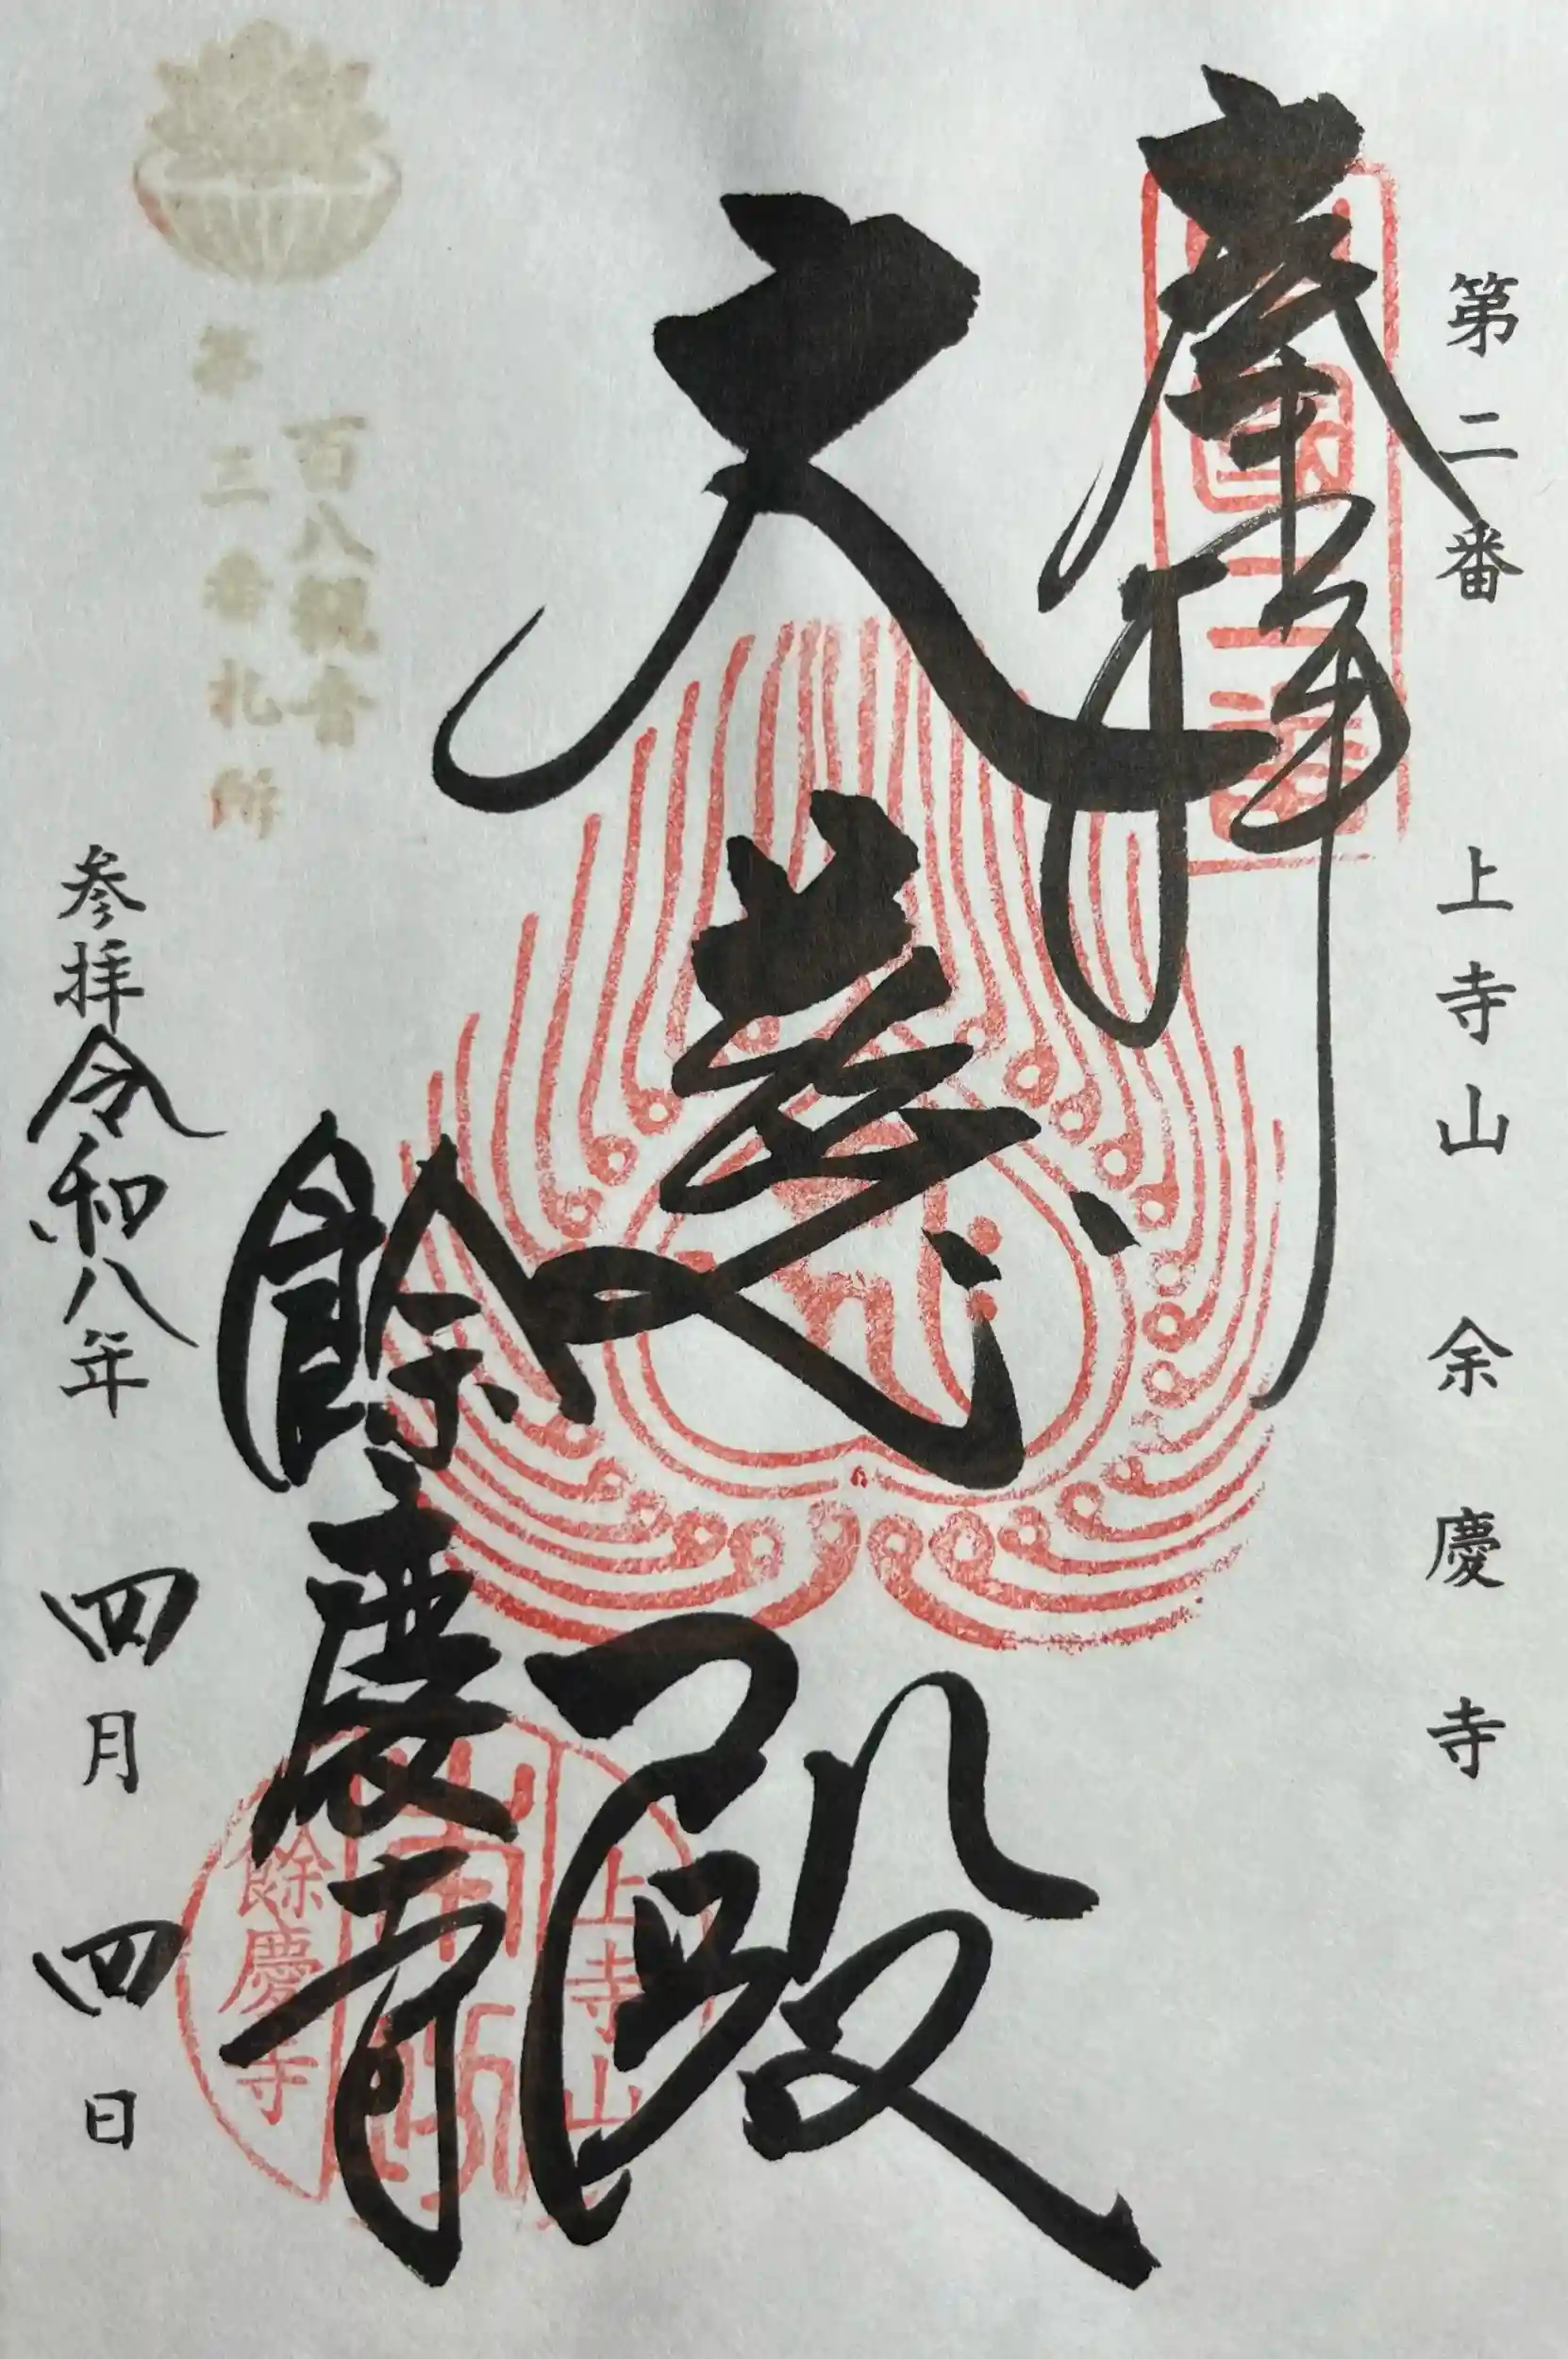 第二番　上寺山　余慶寺
奉拝
大慈殿
餘慶寺
上寺山
餘慶寺
百八観音
第三番札所
参拝令和八年　四月　四日